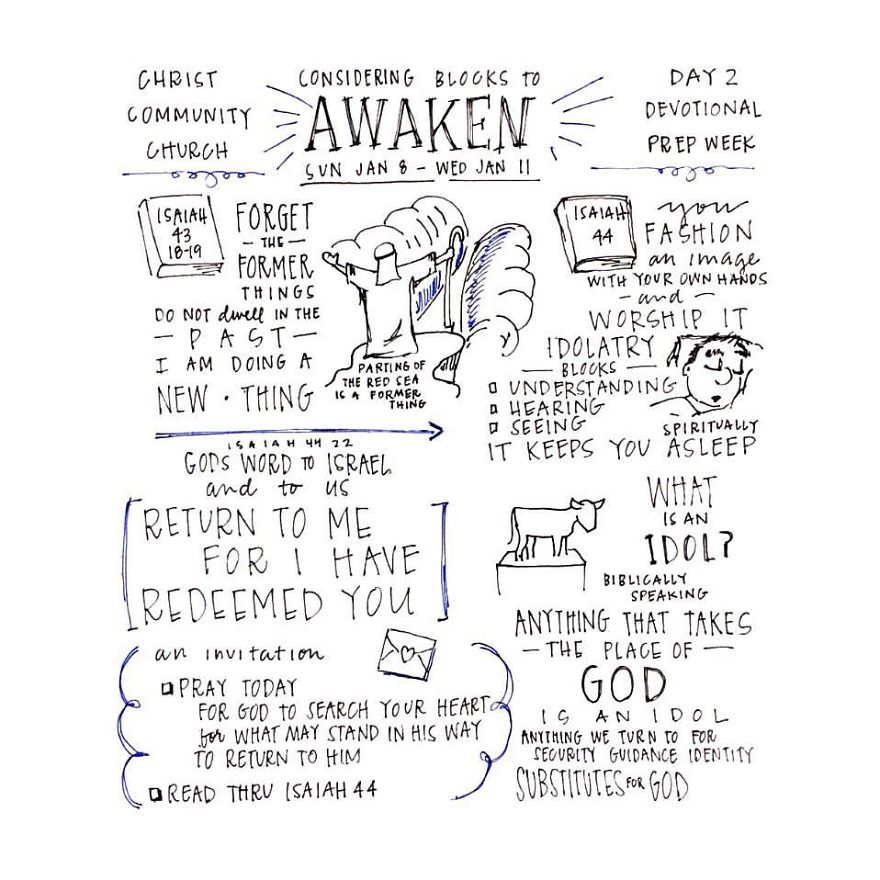 CHRIST
COMMUNITY
CHURCH
CONSIDERING BLOCKS TO
AWAKEN
SUN JAN 8 - WED JAN 11
DAY 2
DEVOTIONAL
PREP WEEK
ISAIAH
43
18-19
FORGET
- THE -
FORMER
THINGS
DO NOT dwell IN THE
- PAST -
I AM DOING A
NEW · THING
PARTING OF
THE RED SEA
IS A FORMER
THING
ISAIAH
44
you
FASHION
an image
WITH YOUR OWN HANDS
- and -
WORSHIP IT
IDOLATRY
- BLOCKS -
UNDERSTANDING
HEARING
SEEING
SPIRITUALLY
IT KEEPS YOU ASLEEP
ISAIAH 44 22
GODS WORD TO ISRAEL
and to US
[RETURN TO ME
FOR I HAVE
REDEEMED YOU]
WHAT
IS AN
IDOL?
BIBLICALLY
SPEAKING
ANYTHING THAT TAKES
- THE PLACE OF -
GOD
IS AN IDOL
ANYTHING WE TURN TO FOR
SECURITY GUIDANCE IDENTITY
SUBSTITUTES FOR GOD
an invitation
PRAY TODAY
FOR GOD TO SEARCH YOUR HEART
for WHAT MAY STAND IN HIS WAY
TO RETURN TO HIM
READ THRU ISAIAH 44